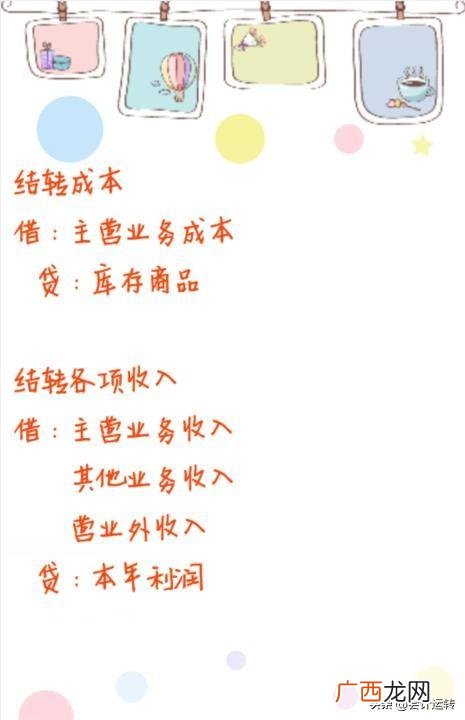 结转成本
借：主营业务成本
贷：库存商品
结转各项收入
借：主营业务收入
其他业务收入
营业外收入
贷：本年利润
广西龙网
头条@会计运转